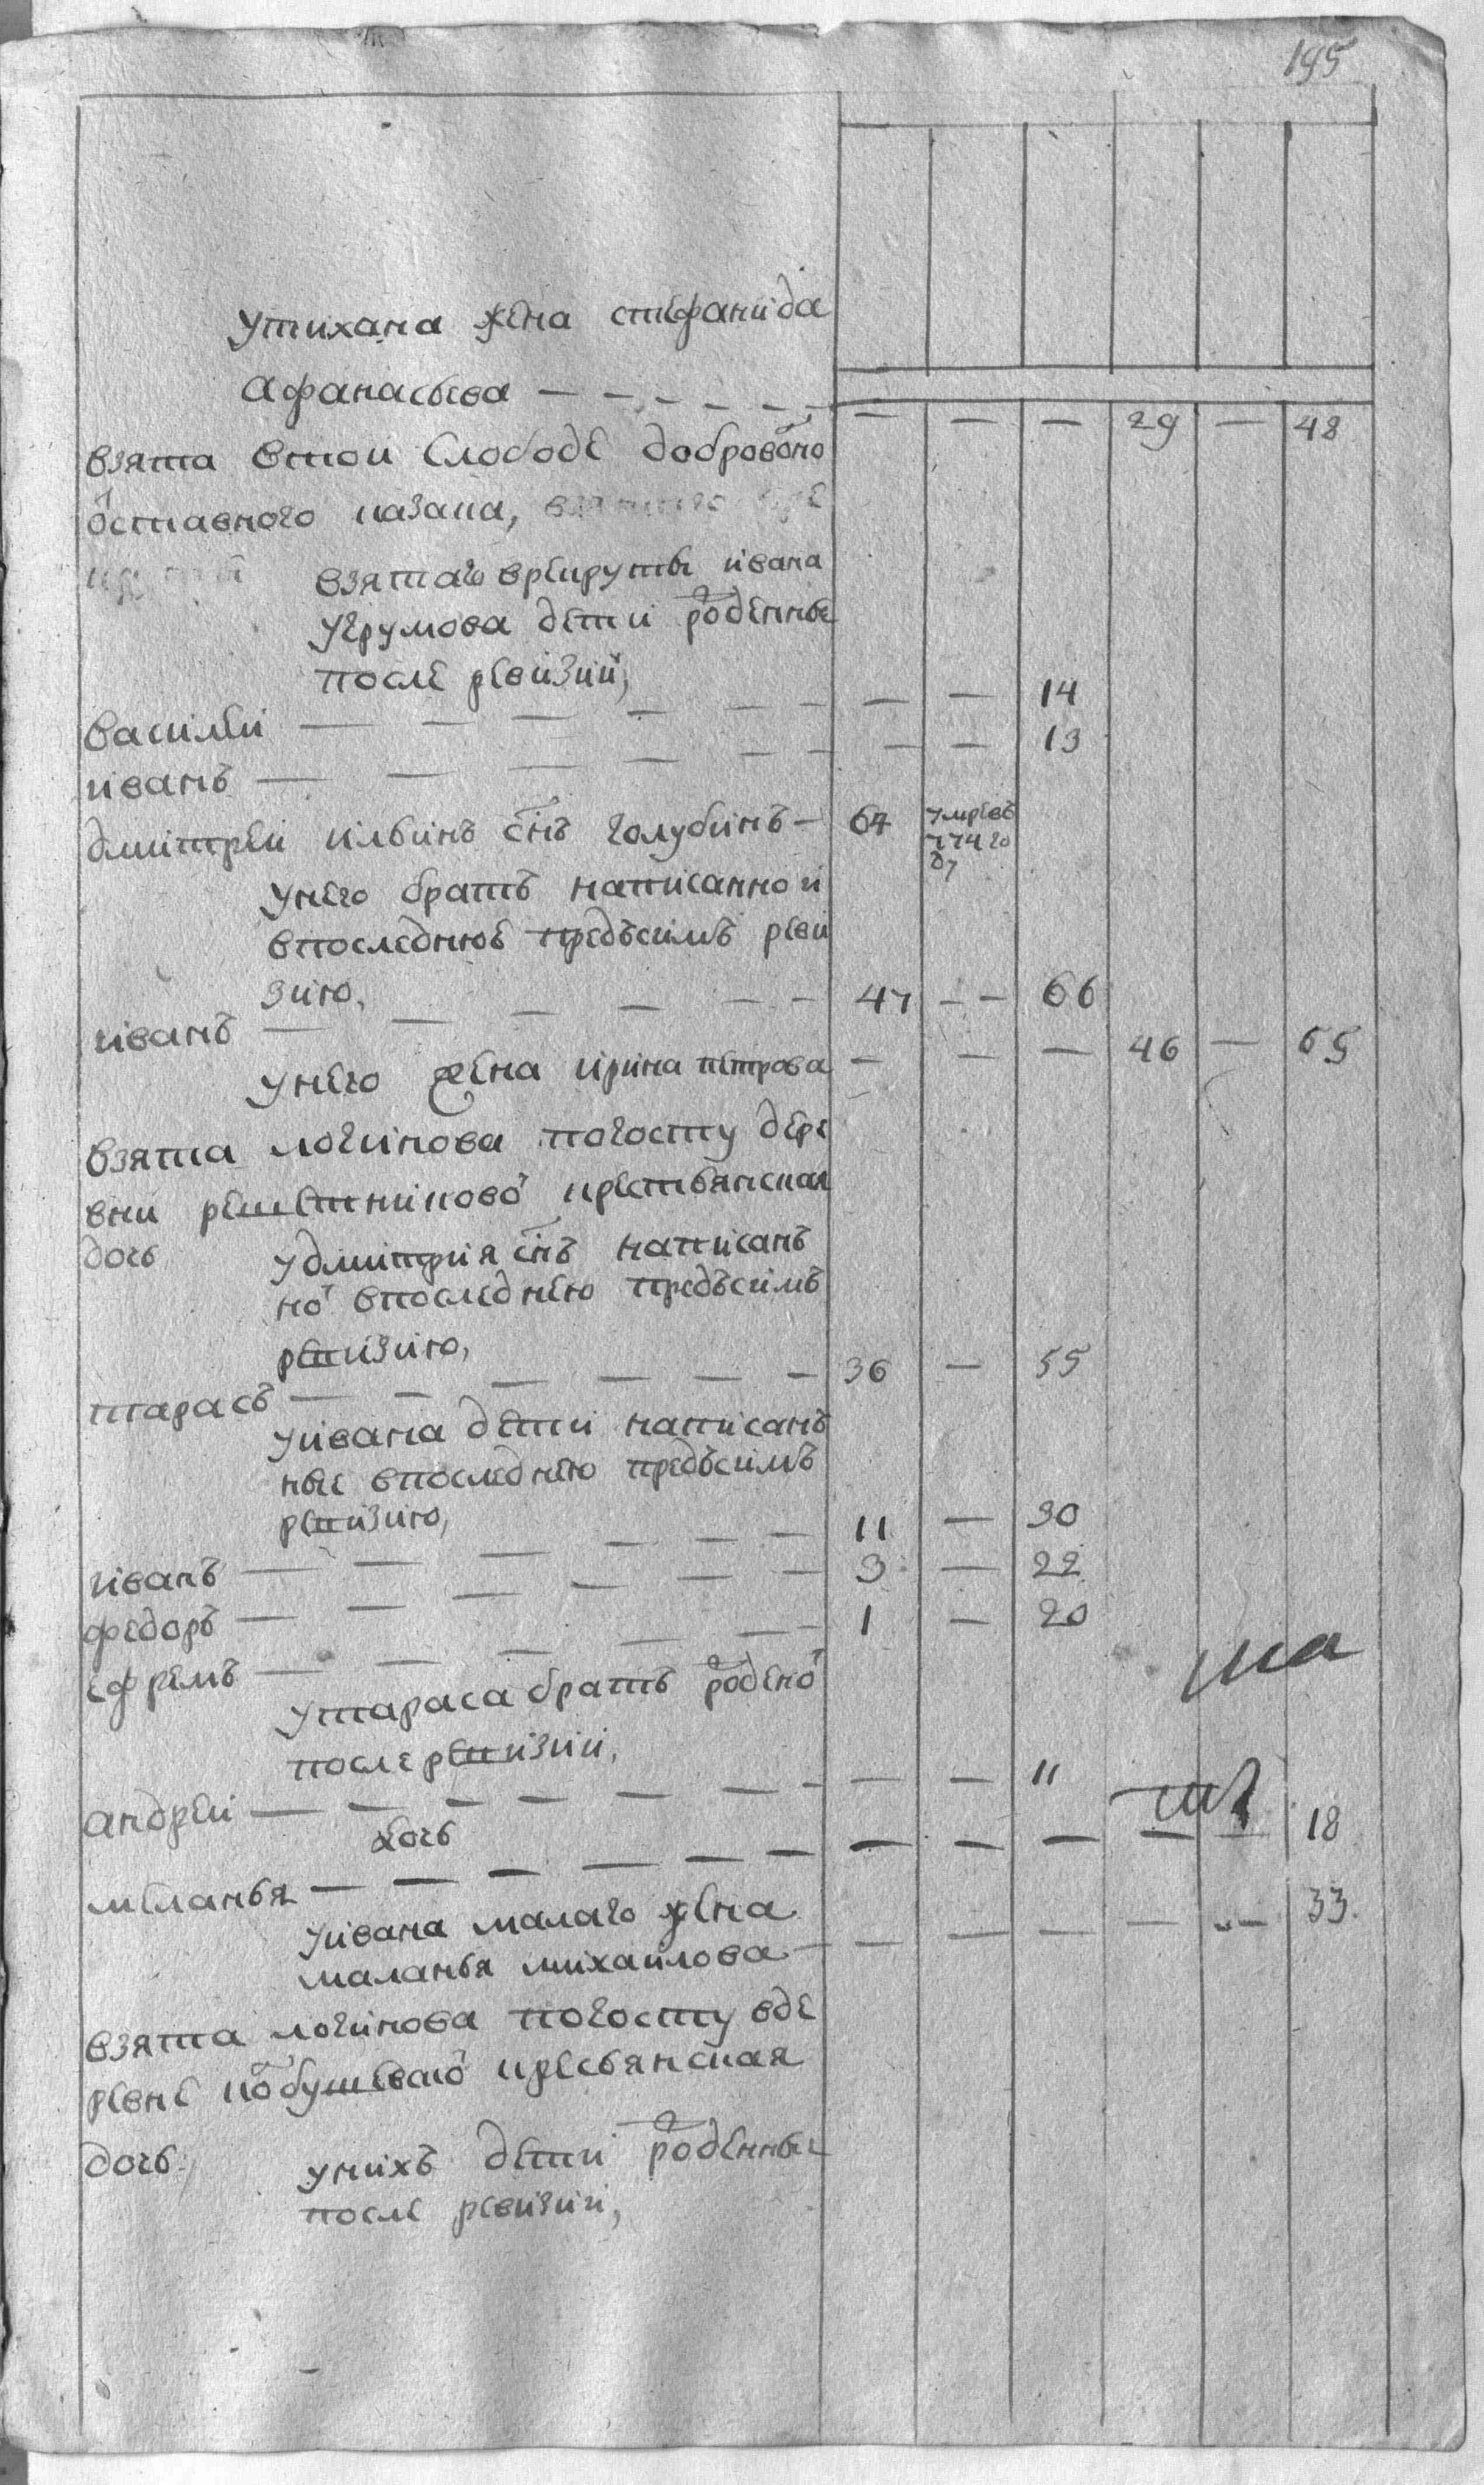 195
Утихана жена стефанида
Афанасьева — — — — — — — — — 29 — 48
взята втои Слободе доброво но
отставного казака,
взятаго врекруты ивана
Угрумова дети роденные
после ревизии,
василеи — — — — — — — — 14
иванъ — — — — — — — — 13
дмитреи ильинъ снъ голубинъ — 64 умревъ 774 го ду
Унего братъ написаннои
впоследнюю предъсимъ реви
зию,
иванъ — — — — — 47 — — 66
Унего жена ирина петрова — — — 46 — 65
взята логинова погосту дере
вни решетниково крестьянская
дочь
Удмитрия снъ написанъ
но впоследнею предъсимъ
ревизию,
тарасъ — — — — — — 36 — 55
Уивана дети написанъ
ные впоследнею предъсимъ
ревизию,
иванъ — — — — — 11 — 30
федоръ — — — — — 3 — 22
ефремъ — — — — — 1 — 20
Утараса братъ родено
после ревизии,
андреи — — — — — — — — 11
дочь
меланья — — — — — — — — — — — 18
Уивана малаго жена
маланья михаилова — — — — — — 33
взята логинова погосту вде
ревне кресьянская
дочь
унихъ дети роденные
после ревизии,